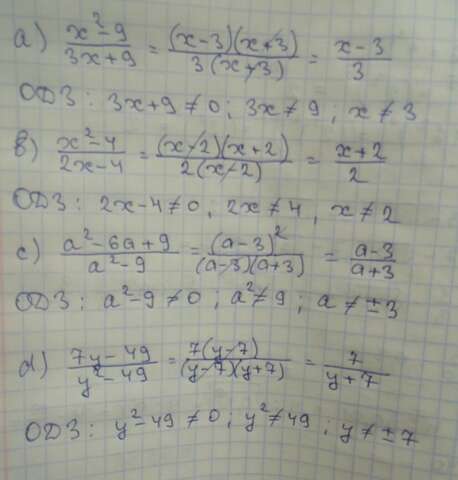 a) \frac{x^2-9}{3x+9} = \frac{(x-3)(x+3)}{3(x+3)} = \frac{x-3}{3}
ОДЗ: 3x+9≠0; 3x≠9; x≠3
b) \frac{x^2-4}{2x-4} = \frac{(x-2)(x+2)}{2(x-2)} = \frac{x+2}{2}
ОДЗ: 2x-4≠0, 2x≠4, x≠2
c) \frac{a^2-6a+9}{a^2-9} = \frac{(a-3)^2}{(a-3)(a+3)} = \frac{a-3}{a+3}
ОДЗ: a^2-9≠0; a^2≠9; a≠±3
d) \frac{7y-49}{y^2-49} = \frac{7(y-7)}{(y-7)(y+7)} = \frac{7}{y+7}
ОДЗ: y^2-49≠0; y^2≠49; y≠±7